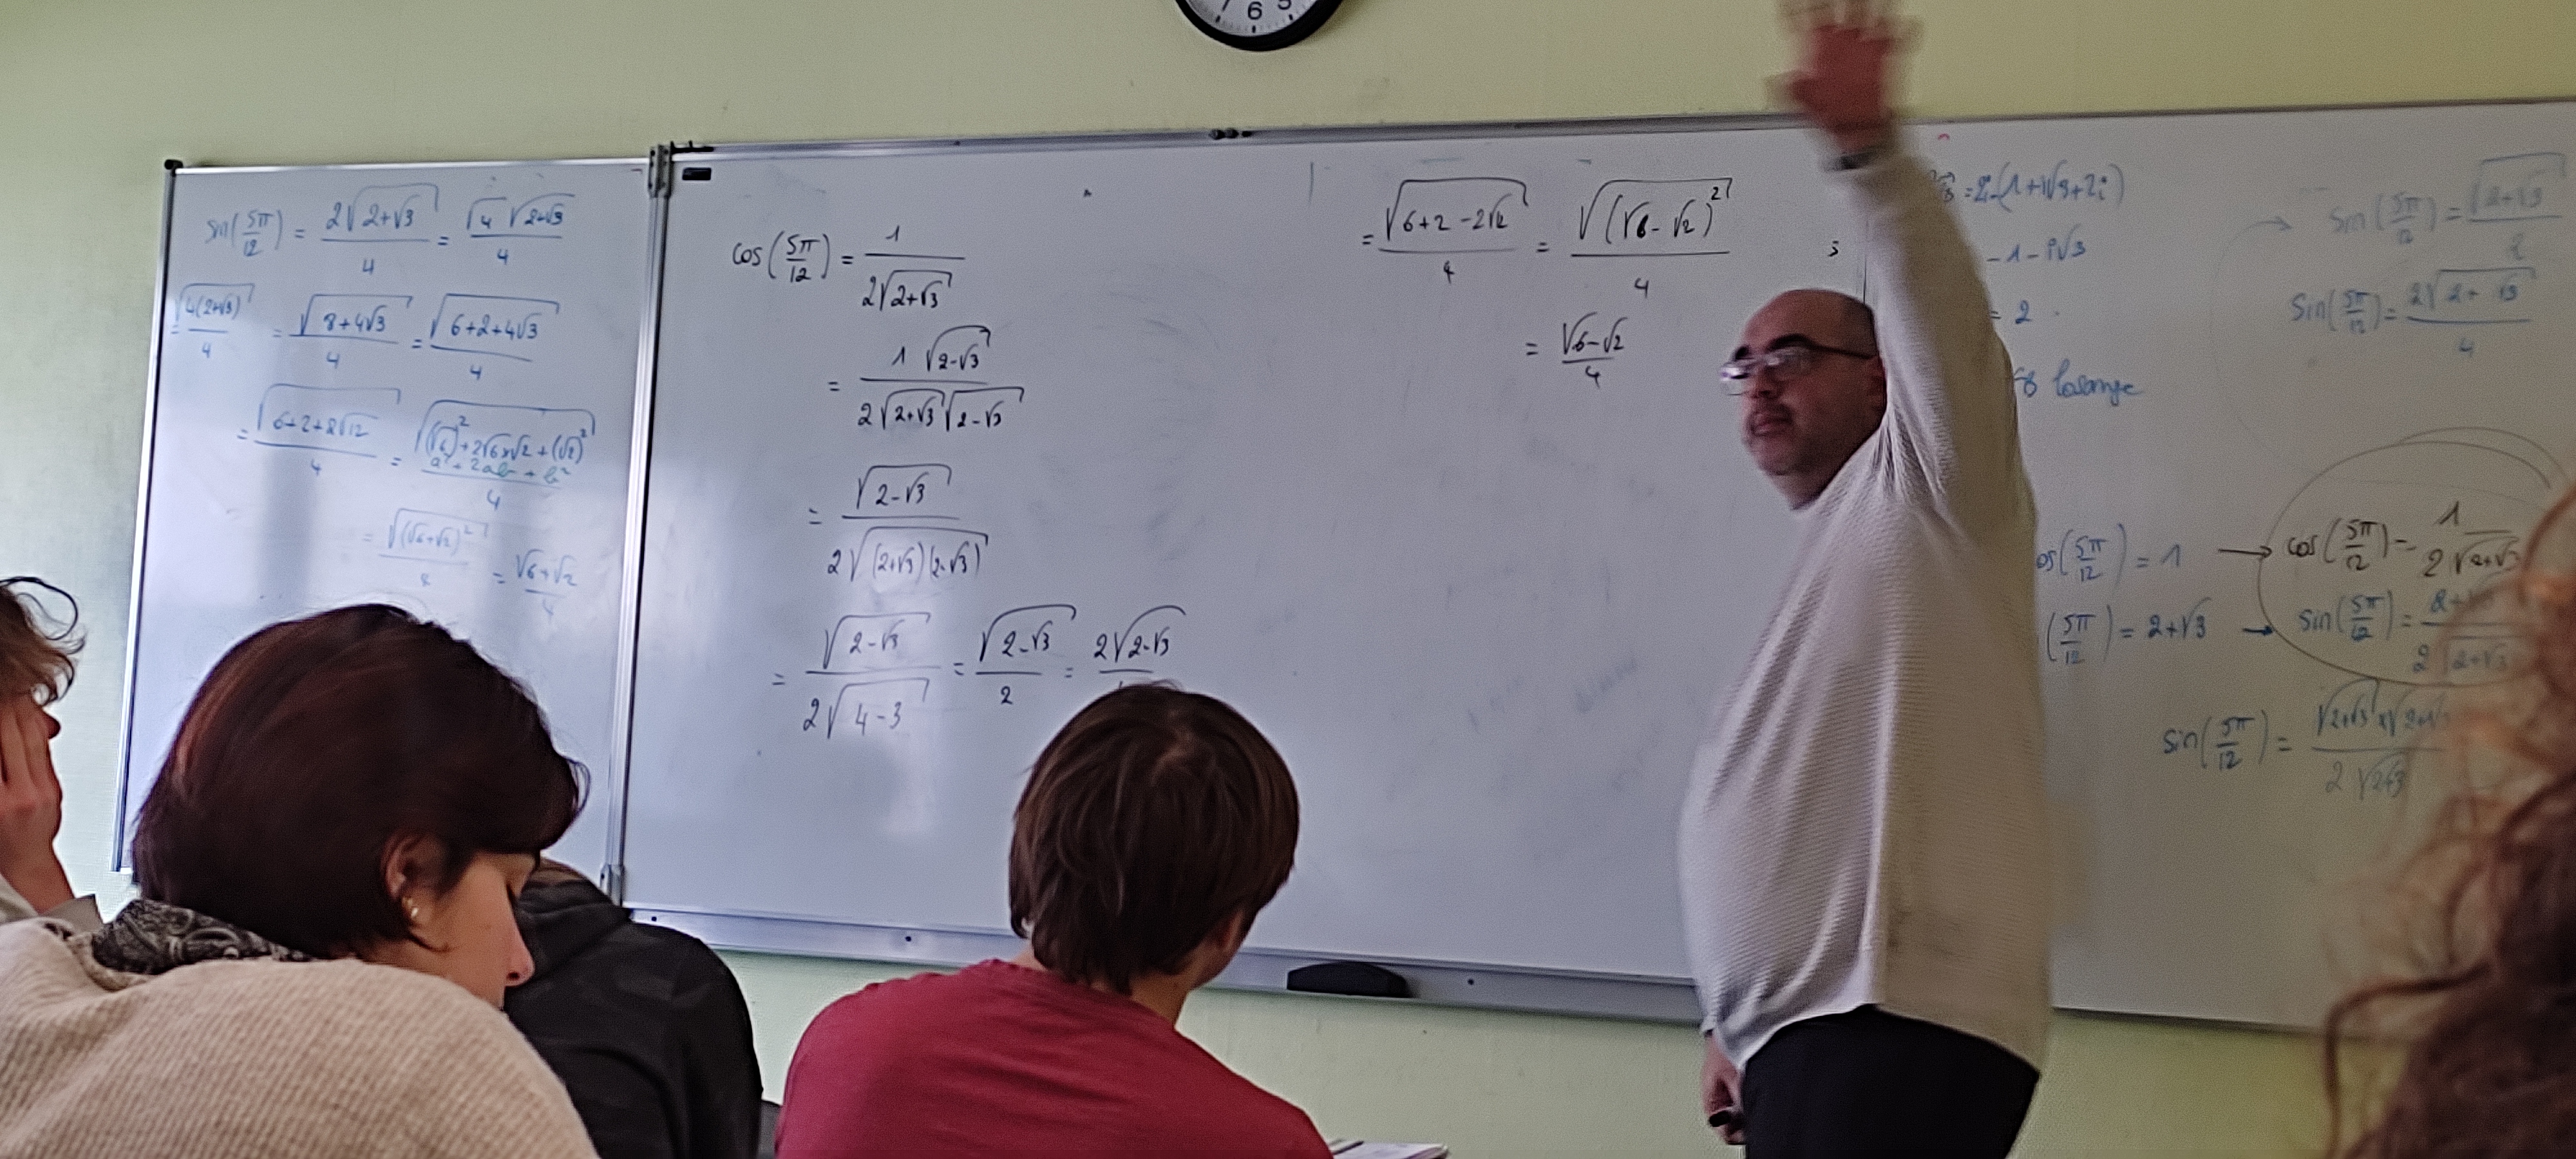 6 5
sin(5π/12) = 2√(2+√3)/4 = √4 √(2+√3)/4
= √(4(2+√3))/4 = √(8+4√3)/4 = √(6+2+4√3)/4
= √(6+2+2√12)/4 = √((√6)²+2√6×√2+(√2)²)/4
a²+2ab+b²
= √((√6+√2)²)/4 = (√6+√2)/4
cos(5π/12) = 1/(2√(2+√3))
= 1 √(2-√3)/(2√(2+√3)√(2-√3))
= √(2-√3)/(2√((2+√3)(2-√3)))
= √(2-√3)/(2√(4-3)) = √(2-√3)/2 = 2√(2-√3)
= √(6+2-2√12)/4 = √((√6-√2)²)/4 ;
= (√6-√2)/4
-(1+i√3+2i)
-1-i√3
= 2
losange
os(5π/12) = 1 → cos(5π/12) = 1/(2√(2+√3
(5π/12) = 2+√3 → sin(5π/12) = 2+/(2√(2+√3
sin(5π/12) = √(2+√3)×√(2+/(2√(2+√3
→ sin(5π/12) = √(2+√3)/2
sin(5π/12) = 2√(2+√3)/4